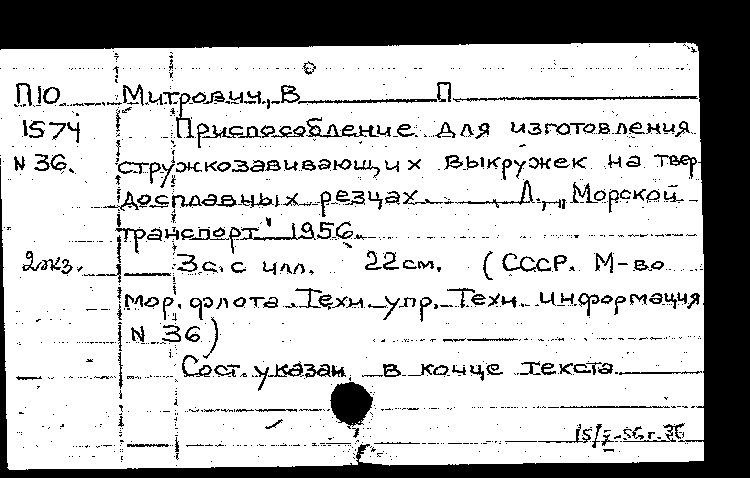 П10 Митрович, В П
1574 Приспособление для изготовления
N 36. стружкозавивающих выкружек на твер
досплавных резцах. , Л., „Морской
транспорт" 1956.
2экз. 3с. с илл. 22 см. (СССР. М-во
мор. флота. Техн. упр. Техн. информация
N 36)
Сост. указан в конце текста